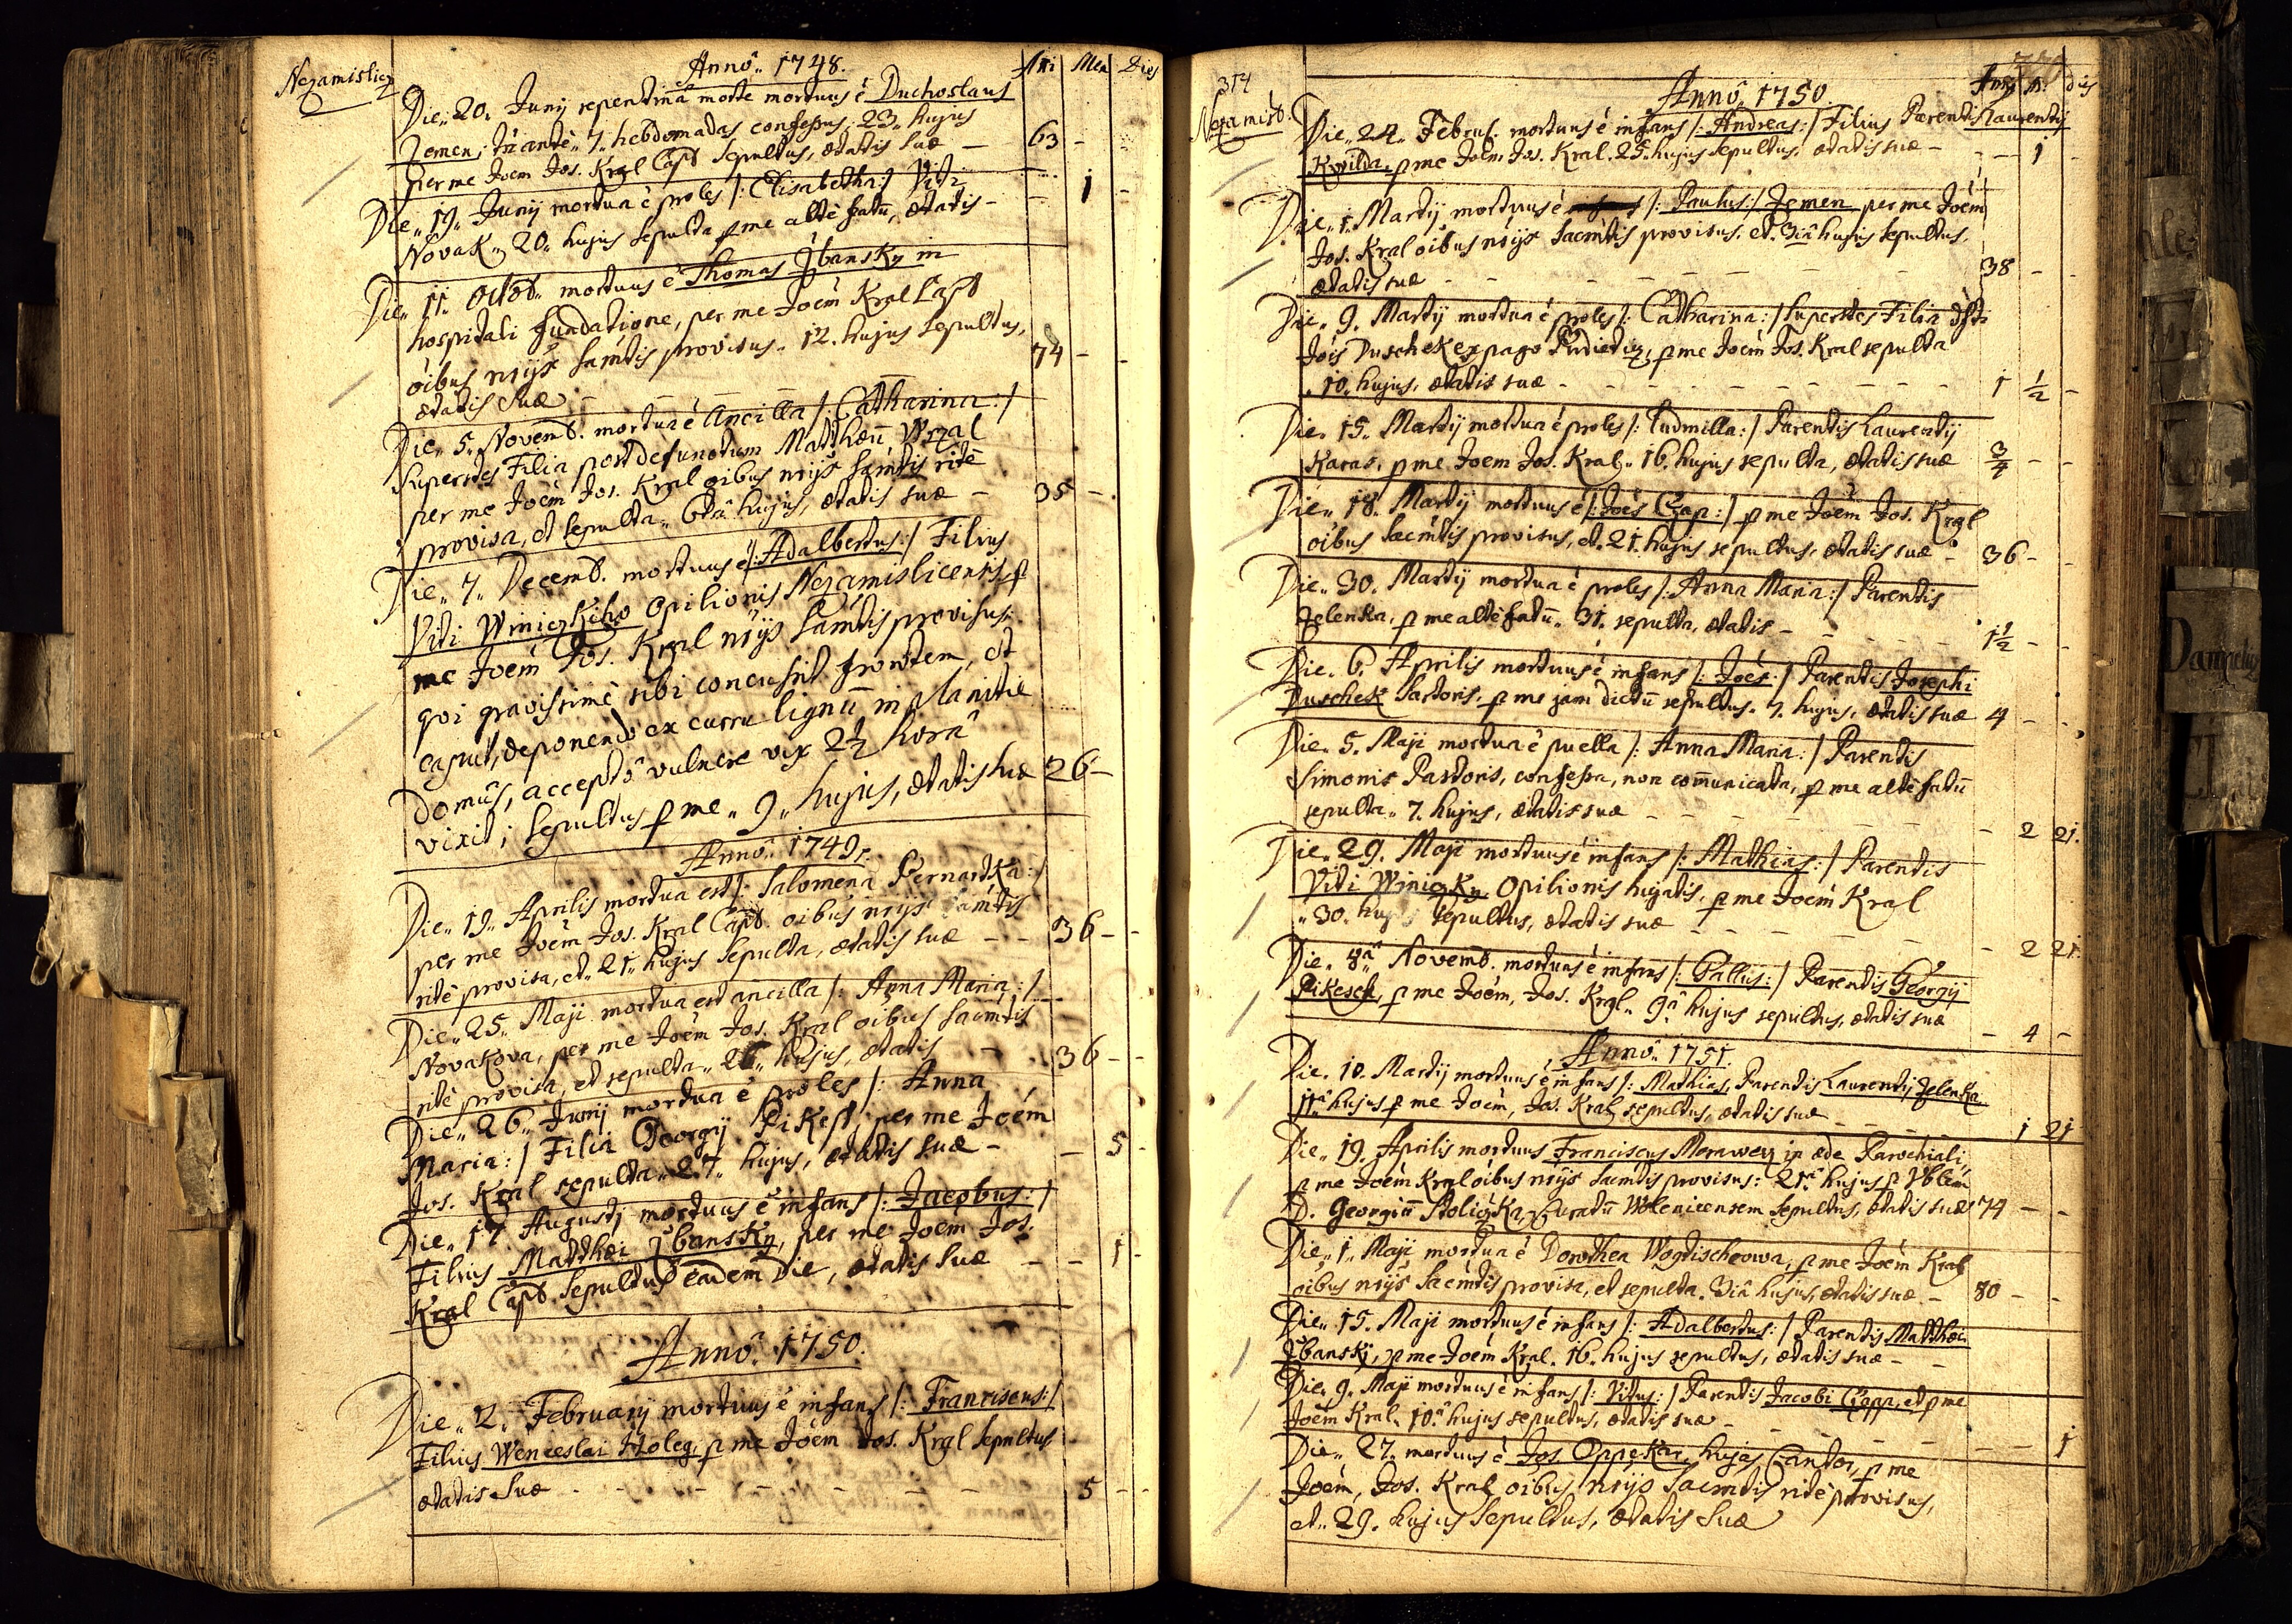 Nezamislicz
Annô. 1748.
Añi Men Dies
Die 20. Junij repentinâ morte mortuus ê Duchoslaus
Zemen, tñ antè 7. hebdomadas confessus. 23. hujus
per me Joem Jos. Kral Capl sepultus, ætatis suæ — 63 -
Die 19. Junij mortua ê proles /: Elisabetha :/ Viti
Novak, 20. hujus sepulta p me altè fatũ, ætatis - - 1 -
Die 11. Octob. mortuus ê Thomas Zbansky in
hospitali fundatione, per me Joem Kral Capl
oibus nrijs sacmtis provisus. 12. hujus sepultus,
ætatis suæ — 74 - -
Die 5. Novemb. mortua ê Ancilla /: Catharina :/
superstes Filia post defunctum Matthæũ Wrzal
per me Joem Jos. Kral oibus nrijs sacmtis ritè
provisa, et sepulta 6tâ hujus, ætatis suæ — 35 -
Die 7. Decemb. mortuus ê /: Adalbertus :/ Filius
Viti Winiczkiho Opilionis Nezamislicensis, p
me Joem Jos. Kral nrijs sacmtis provisus:
qvi gravissimè sibi concussit frontem, et
caput, deponendo ex curru lignũ in planitie
domûs, acceptô vulnere vix 2½ horâ
vixit; sepultus p me 9. hujus, ætatis suæ 26 -
Annô. 1749.
Die 19. Aprilis mortua est /: Salomena Bernartka :/
per me Joem Jos. Kral Capl. oibus nrijs sacmtis
ritè provisa, et 21. hujus sepulta, ætatis suæ - - 36 - -
Die 25. Maji mortua est ancilla /: Anna Maria :/
Novakova, per me Joem Jos. Kral oibus sacmtis
ritè provisa, et sepulta 26. hujus, ætatis - 36 - -
Die 26. Junij mortua ê proles /: Anna
Maria :/ Filia Georgij Pikess, per me Joem
Jos. Kral sepulta 27. hujus, ætatis suæ - - 5 -
Die 17. Augusti mortuus ê infans /: Jacobus :/
Filius Matthæi Zbansky, per me Joem Jos.
Kral Capl. sepultus eâdem die, ætatis suæ - - 1 -
Annô. 1750.
Die 12. Februarij mortuus ê infans /: Franciscus :/
Filius Wenceslai Holeg, p me Joem Jos. Kral sepultus
ætatis suæ - - - - - - - 5 - -
314
Nezamisl.
Annô. 1750.
Anni M. dies
Die 24. Februs. mortuus ê infans /: Andreas :/ Filius Parentis Laurentij
Kwilda, p me Joem Jos. Kral. 25. hujus sepultus, ætatis suæ - - - 1 -
Die 1. Martij mortuus ê /: Paulus :/ Zemen per me Joem
Jos. Kral oibus nrijs sacmtis provisus, et 3iâ hujus sepultus,
ætatis suæ - - - - 38 - -
Die 9. Martij mortua ê proles /: Catharina :/ superstes Filia dfti
Jois Duschek ex pago, p me Joem Jos. Kral sepulta
10. hujus, ætatis suæ - - - - 1 ½ -
Die 15. Martij mortua ê proles /: Ludmilla :/ Parentis Laurentij
Karas, p me Joem Jos. Kral. 16. hujus sepulta, ætatis suæ ¾ - -
Die 18. Martij mortuus ê /: Joes Czap :/ p me Joem Jos. Kral
oibus sacmtis provisus, et 21. hujus sepultus, ætatis suæ - 36 - -
Die 30. Martij mortua ê proles /: Anna Maria :/ Parentis
Zelenka, p me altè fatũ. 31. sepulta, ætatis - - - 1½ - -
Die 6. Aprilis mortuus ê infans /: Joes :/ Parentis Josephi
Duschek Sartoris, p me jam dictũ sepultus. 7. hujus, ætatis suæ 4 - -
Die 5. Maji mortua ê puella /: Anna Maria :/ Parentis
Simonis Pastoris, confessa, non com̃unicata, p me altè fatũ
sepulta 7. hujus, ætatis suæ - - - - 2 21.
Die 29. Maji mortuus ê infans /: Mathias :/ Parentis
Viti Winiczky Opilionis hujatis, p me Joem Kral
30. hujus sepultus, ætatis suæ - - - - 2 21
Die 8â Novemb. mortuus ê infans /: Gallus :/ Parentis Georgij
Pikesch, p me Joem, Jos. Kral. 9â hujus sepultus, ætatis suæ - 4 -
Annô. 1751.
Die 10. Martij mortuus ê infans /: Mathias, Parentis Laurentij Zelenka
11â hujus p me Joem, Jos. Kral sepultus, ætatis suæ - - - 1 21
Die 19. Aprilis mortuus Franciscus Morawecz in æde Parochiali
p me Joem Kral oibus nrijs sacmtis provisus: 21â hujus p
D. Georgiũ Stoliczka, Curatũ Wolenicensem sepultus, ætatis suæ 74 - -
Die 1. Maji mortua ê Dorothea Wogtischkowa, p me Joem Kral
oibus nrijs sacmtis provisa, et sepulta 3iâ hujus, ætatis suæ - 80 - -
Die 15. Maji mortuus ê infans /: Adalbertus :/ Parentis Matthæi
Zbansky, p me Joem Kral. 16. hujus sepultus, ætatis suæ - -
Die 9. Maji mortuus ê infans /: Vitus :/ Parentis Jacobi Czapp, et p me
Joem Kral. 10â hujus sepultus, ætatis suæ - - - - 1
Die 27. mortuus ê Jos. Oppekar, hujas Cantor, p me
Joem, Jos. Kral oibus nrijs sacmtis ritè provisus,
et 29. hujus sepultus, ætatis suæ